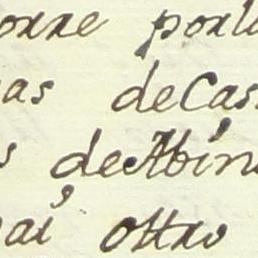 orre porla
as deCas
s deAbin
ai Otro